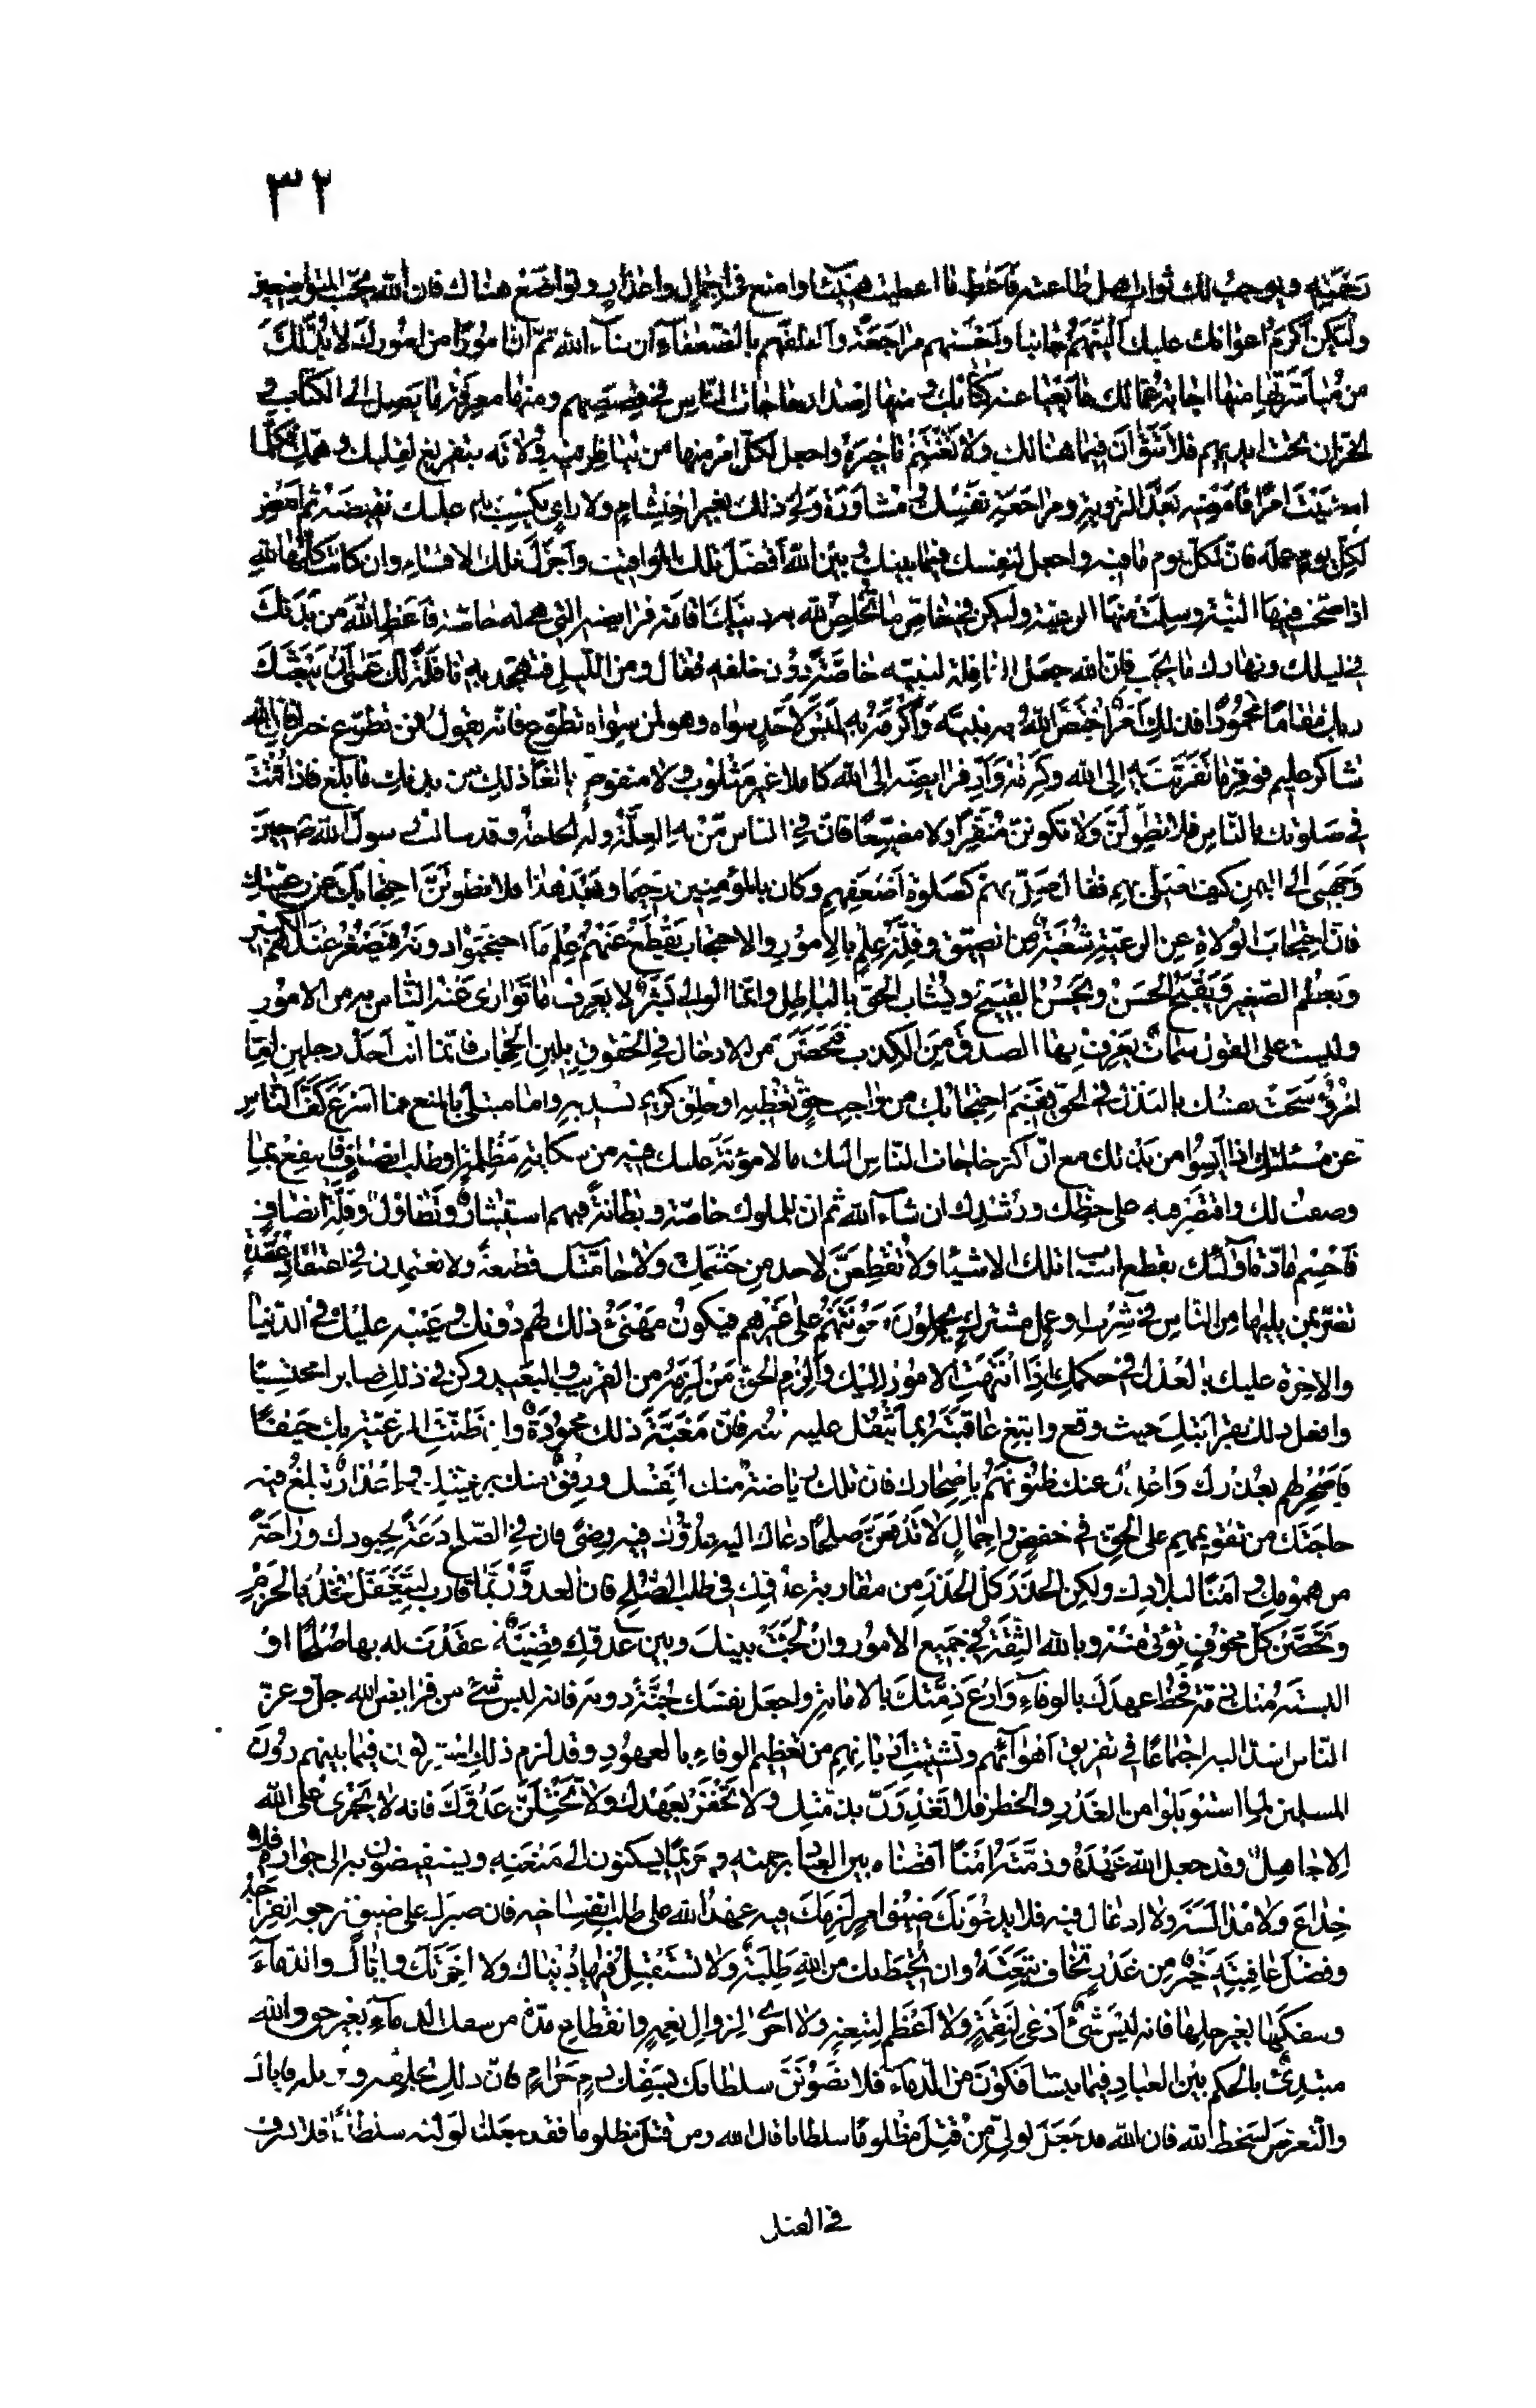 ٣٢
رحمته ويوجب لك ثواب اهل طاعته فاعط ما اعطيت هنيئا وامنع في اجمال واعذار وتواضع هناك فان الله يحب المتواضعين
وليكن اكرم اعوانك عليك الينهم جانبا واحسنهم مراجعة والطفهم بالضعفاء ان شاء الله ثم ان امورا من امورك لا بد لك
من مباشرتها منها اجابة عمالك ما يعيا عنه كتابك ومنها اصدار حاجات الناس في قصصهم ومنها معرفة ما يصل الى الكتاب و
الخزان تحت ايديهم فلا تتوان فيما هنالك ولا تغتنم تاخيره واجعل لكل امر منها من يناظر فيه ولاته بتفريغ لقلبك وهمك فكلما
امضيت امرا فامضه بعد التروية ومراجعة نفسك ومشاورة ولي ذلك بغير احتشام ولا راي يكسب به عليك نقيضه ثم امض
لكل يوم عمله فان لكل يوم ما فيه واجعل لنفسك فيما بينك وبين الله افضل تلك المواقيت واجزل تلك الاقسام وان كانت كلها لله
اذا صحت فيها النية وسلمت منها الرعية وليكن في خاص ما تخلص لله به دينك اقامة فرائضه التي هي له خاصة فاعط الله من بدنك
في ليلك ونهارك ما يجب فان الله جعل النافلة لنبيه خاصة دون خلقه فقال ومن الليل فتهجد به نافلة لك عسى ان يبعثك
ربك مقاما محمودا فذلك امر اختص الله به نبيه واكرمه به ليس لاحد سواه وهو لمن سواه تطوع فانه يقول فمن تطوع خيرا فان الله
شاكر عليم فوفر ما تقربت به الى الله وكرمه واد فرايضه الى الله كاملا غير مثلوب ولا منقوص بالغا ذلك من بدنك ما بلغ فاذا قمت
في صلوتك بالناس فلا تطولن ولا تكونن منفرا ولا مضيعا فان في الناس من به العلة وله الحاجة وقد سالت رسول الله ص حين
وجهني الى اليمن كيف اصلي بهم فقال صل بهم كصلوة اضعفهم وكان بالمؤمنين رحيما وبعد هذا فلا تطولن احتجابك عن رعيتك
فان احتجاب الولاة عن الرعية شعبة من الضيق وقلة علم بالامور والاحتجاب يقطع عنهم علم ما احتجبوا دونه فيصغر عندهم الكبير
ويعظم الصغير ويقبح الحسن ويحسن القبيح ويشاب الحق بالباطل وانما الوالي بشر لا يعرف ما توارى عنه الناس به من الامور
وليست على القول سمات يعرف بها الصدق من الكذب فتحصن من الادخال في الحقوق بلين الحجاب فانما انت احد رجلين اما
امرؤ سخت نفسك بالبذل في الحق ففيم احتجابك من واجب حق تعطيه او خلق كريم تسديه واما مبتلى بالمنع فما اسرع كف الناس
عن مسئلتك اذا ايسوا من بذلك مع ان اكثر حاجات الناس اليك ما لا مؤنة عليك فيه من شكاية مظلمة او طلب انصاف فانتفع بما
وصفت لك واقتصر فيه على حظك ورشدك ان شاء الله ثم ان للملوك خاصة وبطانة فيهم استيثار وتطاول وقلة انصاف
فاحسم مادة اولئك بقطع اسباب تلك الاشياء ولا تقطعن لاحد من حشمك ولا حامتك قطيعة ولا تعتمدن في اعتقاد عقدة
تضر بمن يليها من الناس في شرب او عمل مشترك يحملون مؤنتهم على غيرهم فيكون مهنئ ذلك لهم دونك وعيبه عليك في الدنيا
والاخرة عليك بالعدل في حكمك اذا انتهت الامور اليك والزم الحق من لزمه من القريب والبعيد وكن في ذلك صابرا محتسبا
وافعل ذلك بقرابتك حيث وقع وابتغ عاقبته بما يثقل عليه منه فان مغبة ذلك محمودة وان ظنت الرعية بك حيفا
فاصحر لهم بعذرك واعدل عنك ظنونهم باصحارك فان تلك رياضة منك لنفسك ورفق منك برعيتك واعذار تبلغ فيه
حاجتك من تقويمهم على الحق في خفض واجمال لا تدفعن صلحا دعاك اليه عدوك فيه رضى فان في الصلح دعة لجنودك وراحة
من همومك وامنا لبلادك ولكن الحذر كل الحذر من مقاربة عدوك في طلب الصلح فان العدو ربما قارب ليتغفل فخذ بالحزم
وتحصن كل مخوف تؤتى منه وبالله الثقة في جميع الامور وان لجت بينك وبين عدوك قضية عقدت له بها صلحا او
البسته منك ذمة فحط عهدك بالوفاء وارع ذمتك بالامانة واجعل نفسك جنة دونه فانه ليس شئ من فرايض الله جل وعز
الناس اشد اليه اجتماعا في تفريق اهوائهم وتشتيت اديانهم من تعظيم الوفاء بالعهود وقد لزم ذلك المشركون فيما بينهم دون
المسلمين لما استوبلوا من الغدر والخطر فلا تغدرن بذمتك ولا تخفر بعهدك ولا تختلن عدوك فانه لا يجترئ على الله
الا جاهل وقد جعل الله عهده وذمته امنا افضاه بين العباد برحمته وحريما يسكنون الى منعته ويستفيضون به الى جواره فلا
خداع ولا مدالسة ولا ادغال فيه فلا يدعونك ضيق امر لزمك فيه عهد الله على طلب انفساخه فان صبرك على ضيق ترجو انفراجه
وفضل عاقبته خير من غدر تخاف تبعته وان تحيط بك من الله طلبة ولا تستقيل فيها دنياك ولا اخرتك واياك والدماء
وسفكها بغير حلها فانه ليس شئ ادعى لنقمة ولا اعظم لتبعة ولا احرى لزوال نعمة وانقطاع مدة من سفك الدماء بغير حق والله
مبتدئ بالحكم بين العباد فيما يتسافكون من الدماء فلا تصونن سلطانك بسفك دم حرام فان ذلك يخلقه و يزيله فاياك
والتعرض لسخط الله فان الله قد جعل لولي من قتل مظلوما سلطانا قال الله ومن قتل مظلوما فقد جعلنا لوليه سلطانا فلا يسرف
في القتل